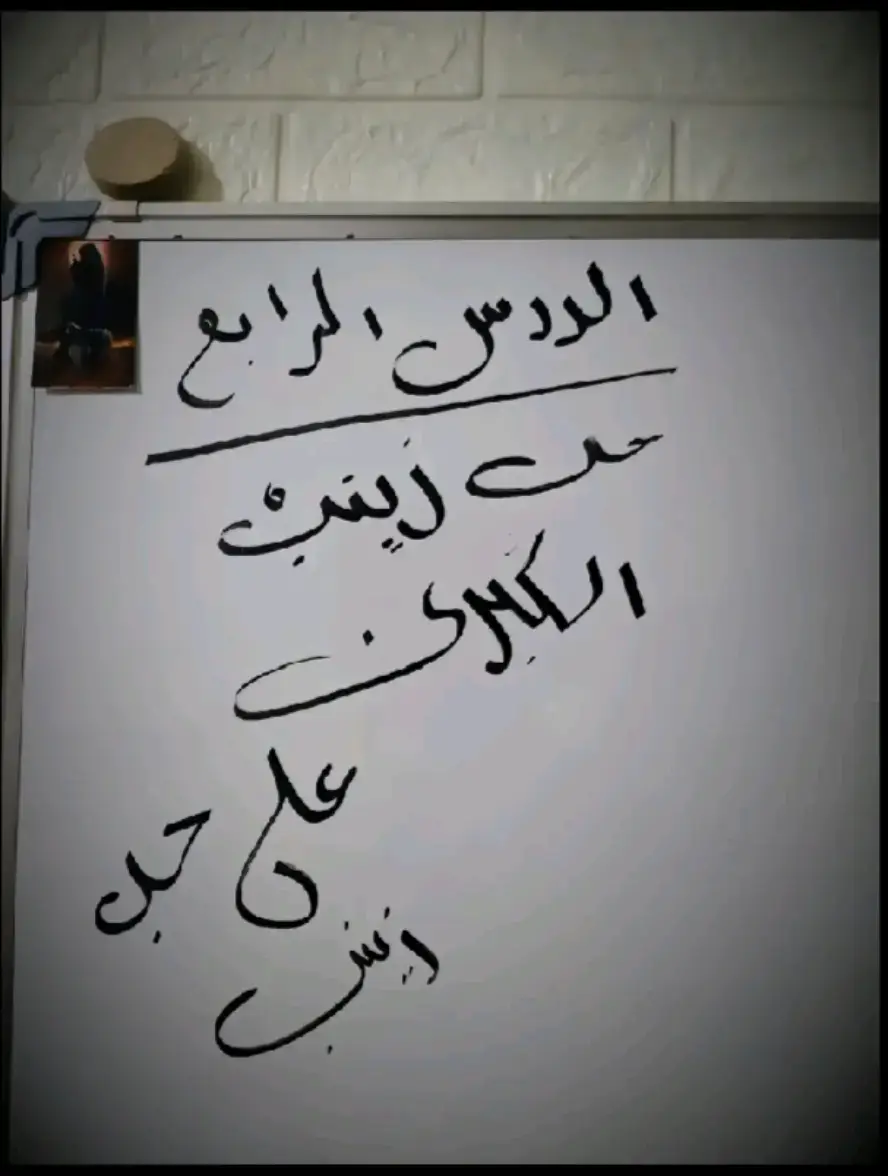 الدرس الرابع
حب زينب
الكبرى
على حب
زينب